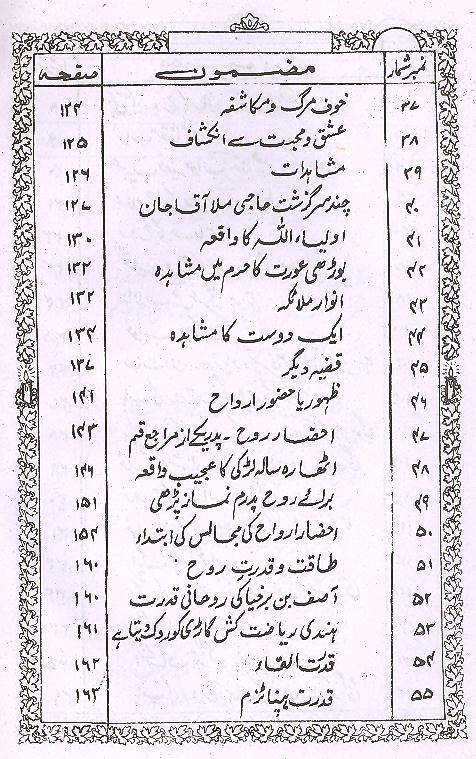 نمبر شمار مضمون صفحہ
۳۷ خوف مرگ و مکاشفہ ۱۲۴
۳۸ عشق و محبت سے انکشاف ۱۲۵
۳۹ مشاہدات ۱۲۶
۴۰ چند سرگزشت حاجی ملا آقا جان ۱۲۷
۴۱ اولیاء اللہ کا واقعہ ۱۳۰
۴۲ بوڑھی عورت کا حرم میں مشاہدہ ۱۳۲
۴۳ انوار ملائکہ ۱۳۲
۴۴ ایک دوست کا مشاہدہ ۱۳۴
۴۵ قضیہ دیگر ۱۳۷
۴۶ ظہور یا حضور ارواح ۱۴۱
۴۷ احضار روح ۔ پدر یکے از مراجع قم ۱۴۳
۴۸ اٹھارہ سالہ لڑکی کا عجیب واقعہ ۱۴۶
۴۹ برائے روح پدرم نماز پڑھی ۱۵۱
۵۰ احضار ارواح کی مجالس کی ابتداء ۱۵۴
۵۱ طاقت و قدرتِ روح ۱۶۰
۵۲ آصف بن برخیا کی روحانی قدرت ۱۶۰
۵۳ ہندی ریاضت کش گاڑی کو روک دیتا ہے ۱۶۱
۵۴ قدرت القاء ۱۶۲
۵۵ قدرت ہپناٹزم ۱۶۳